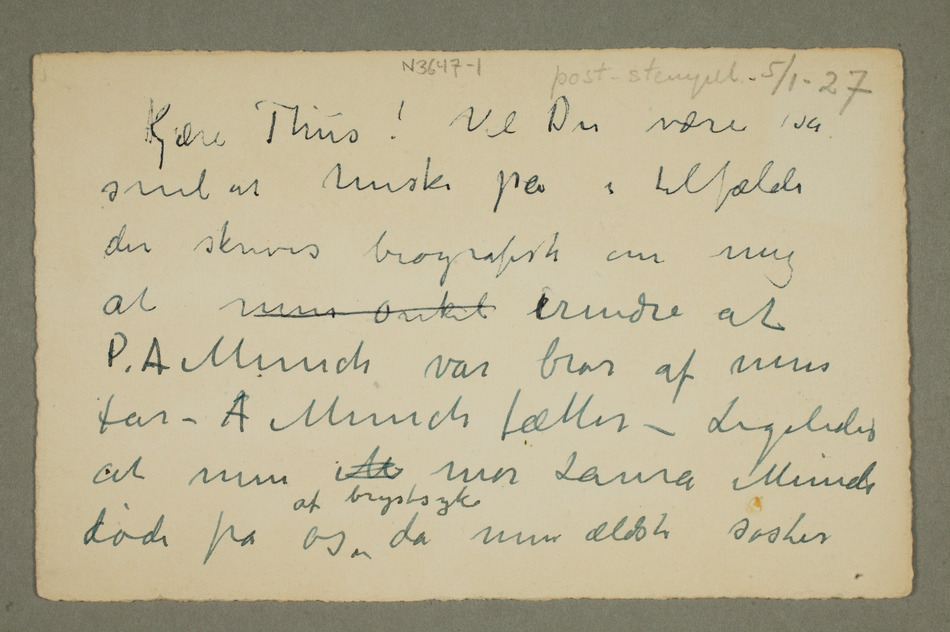 N3647-1
post-stempelt - 5/1-27
Kjære Thiis! Vil Du være så
snil at huske på i tilfælde
der skrives biografisk om mig
at min onkel erindre at
P. A Munch var bror af min
far - A Munch fætter - Ligeledes
at min mor Laura Munch
af brystsyke
døde på og da min ældste søster